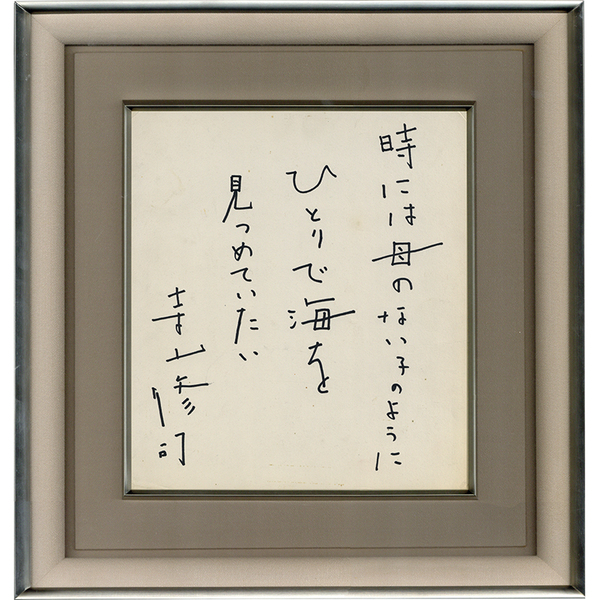 時には母のない子のように
ひとりで海を
見つめていたい
寺山修司